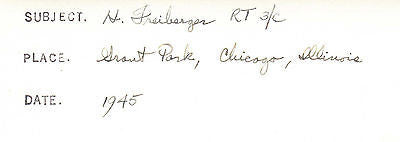 SUBJECT. H. Freiberger RT 3/c
PLACE. Grant Park, Chicago, Illinois
DATE. 1945